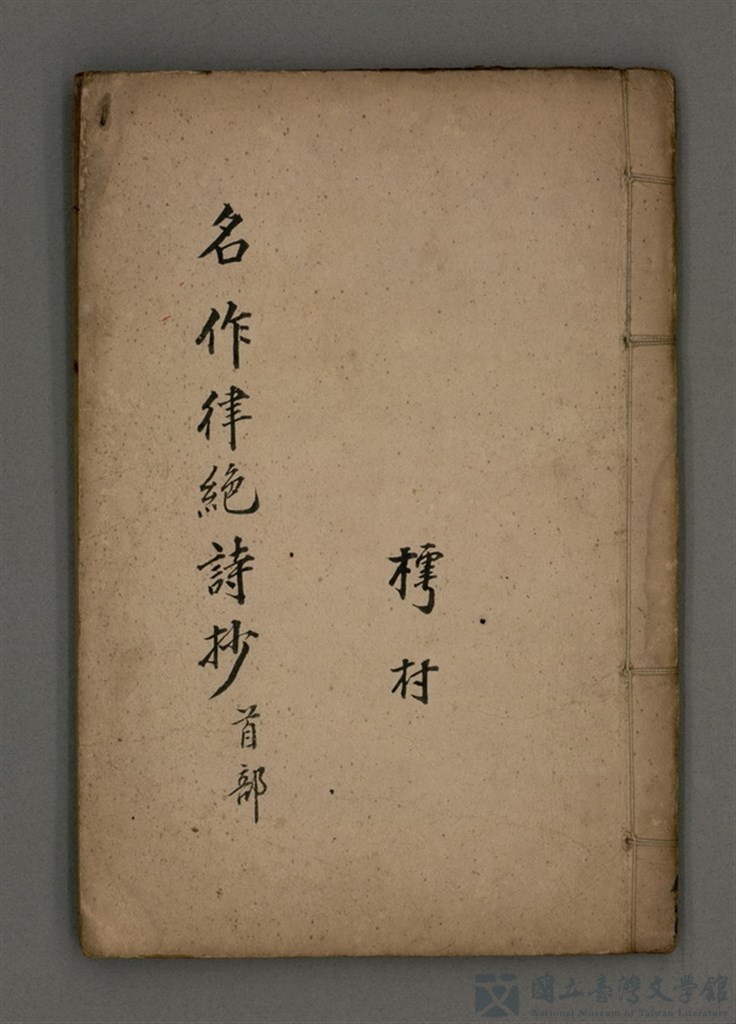 樗村
名作律絕詩抄 首部
國立臺灣文學館
National Museum of Taiwan Literature